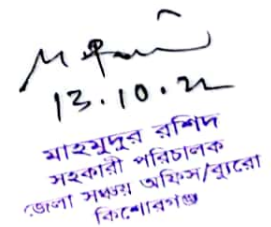 13.10.22
মাহমুদুর রশিদ
সহকারী পরিচালক
জেলা সঞ্চয় অফিস/ব্যুরো
কিশোরগঞ্জ